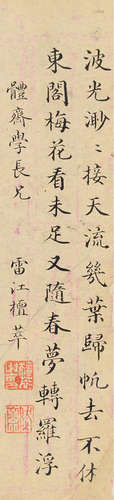 波光渺〻接天流幾葉歸帆去不休
東閣梅花看未足又隨春夢轉羅浮
體齋學長兄
雷江檀萃